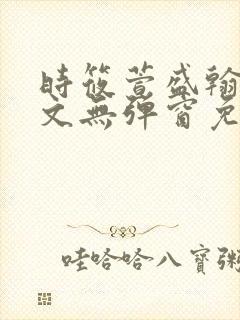 時筱萱盛翰
文無彈窗免
哇哈哈八寶粥